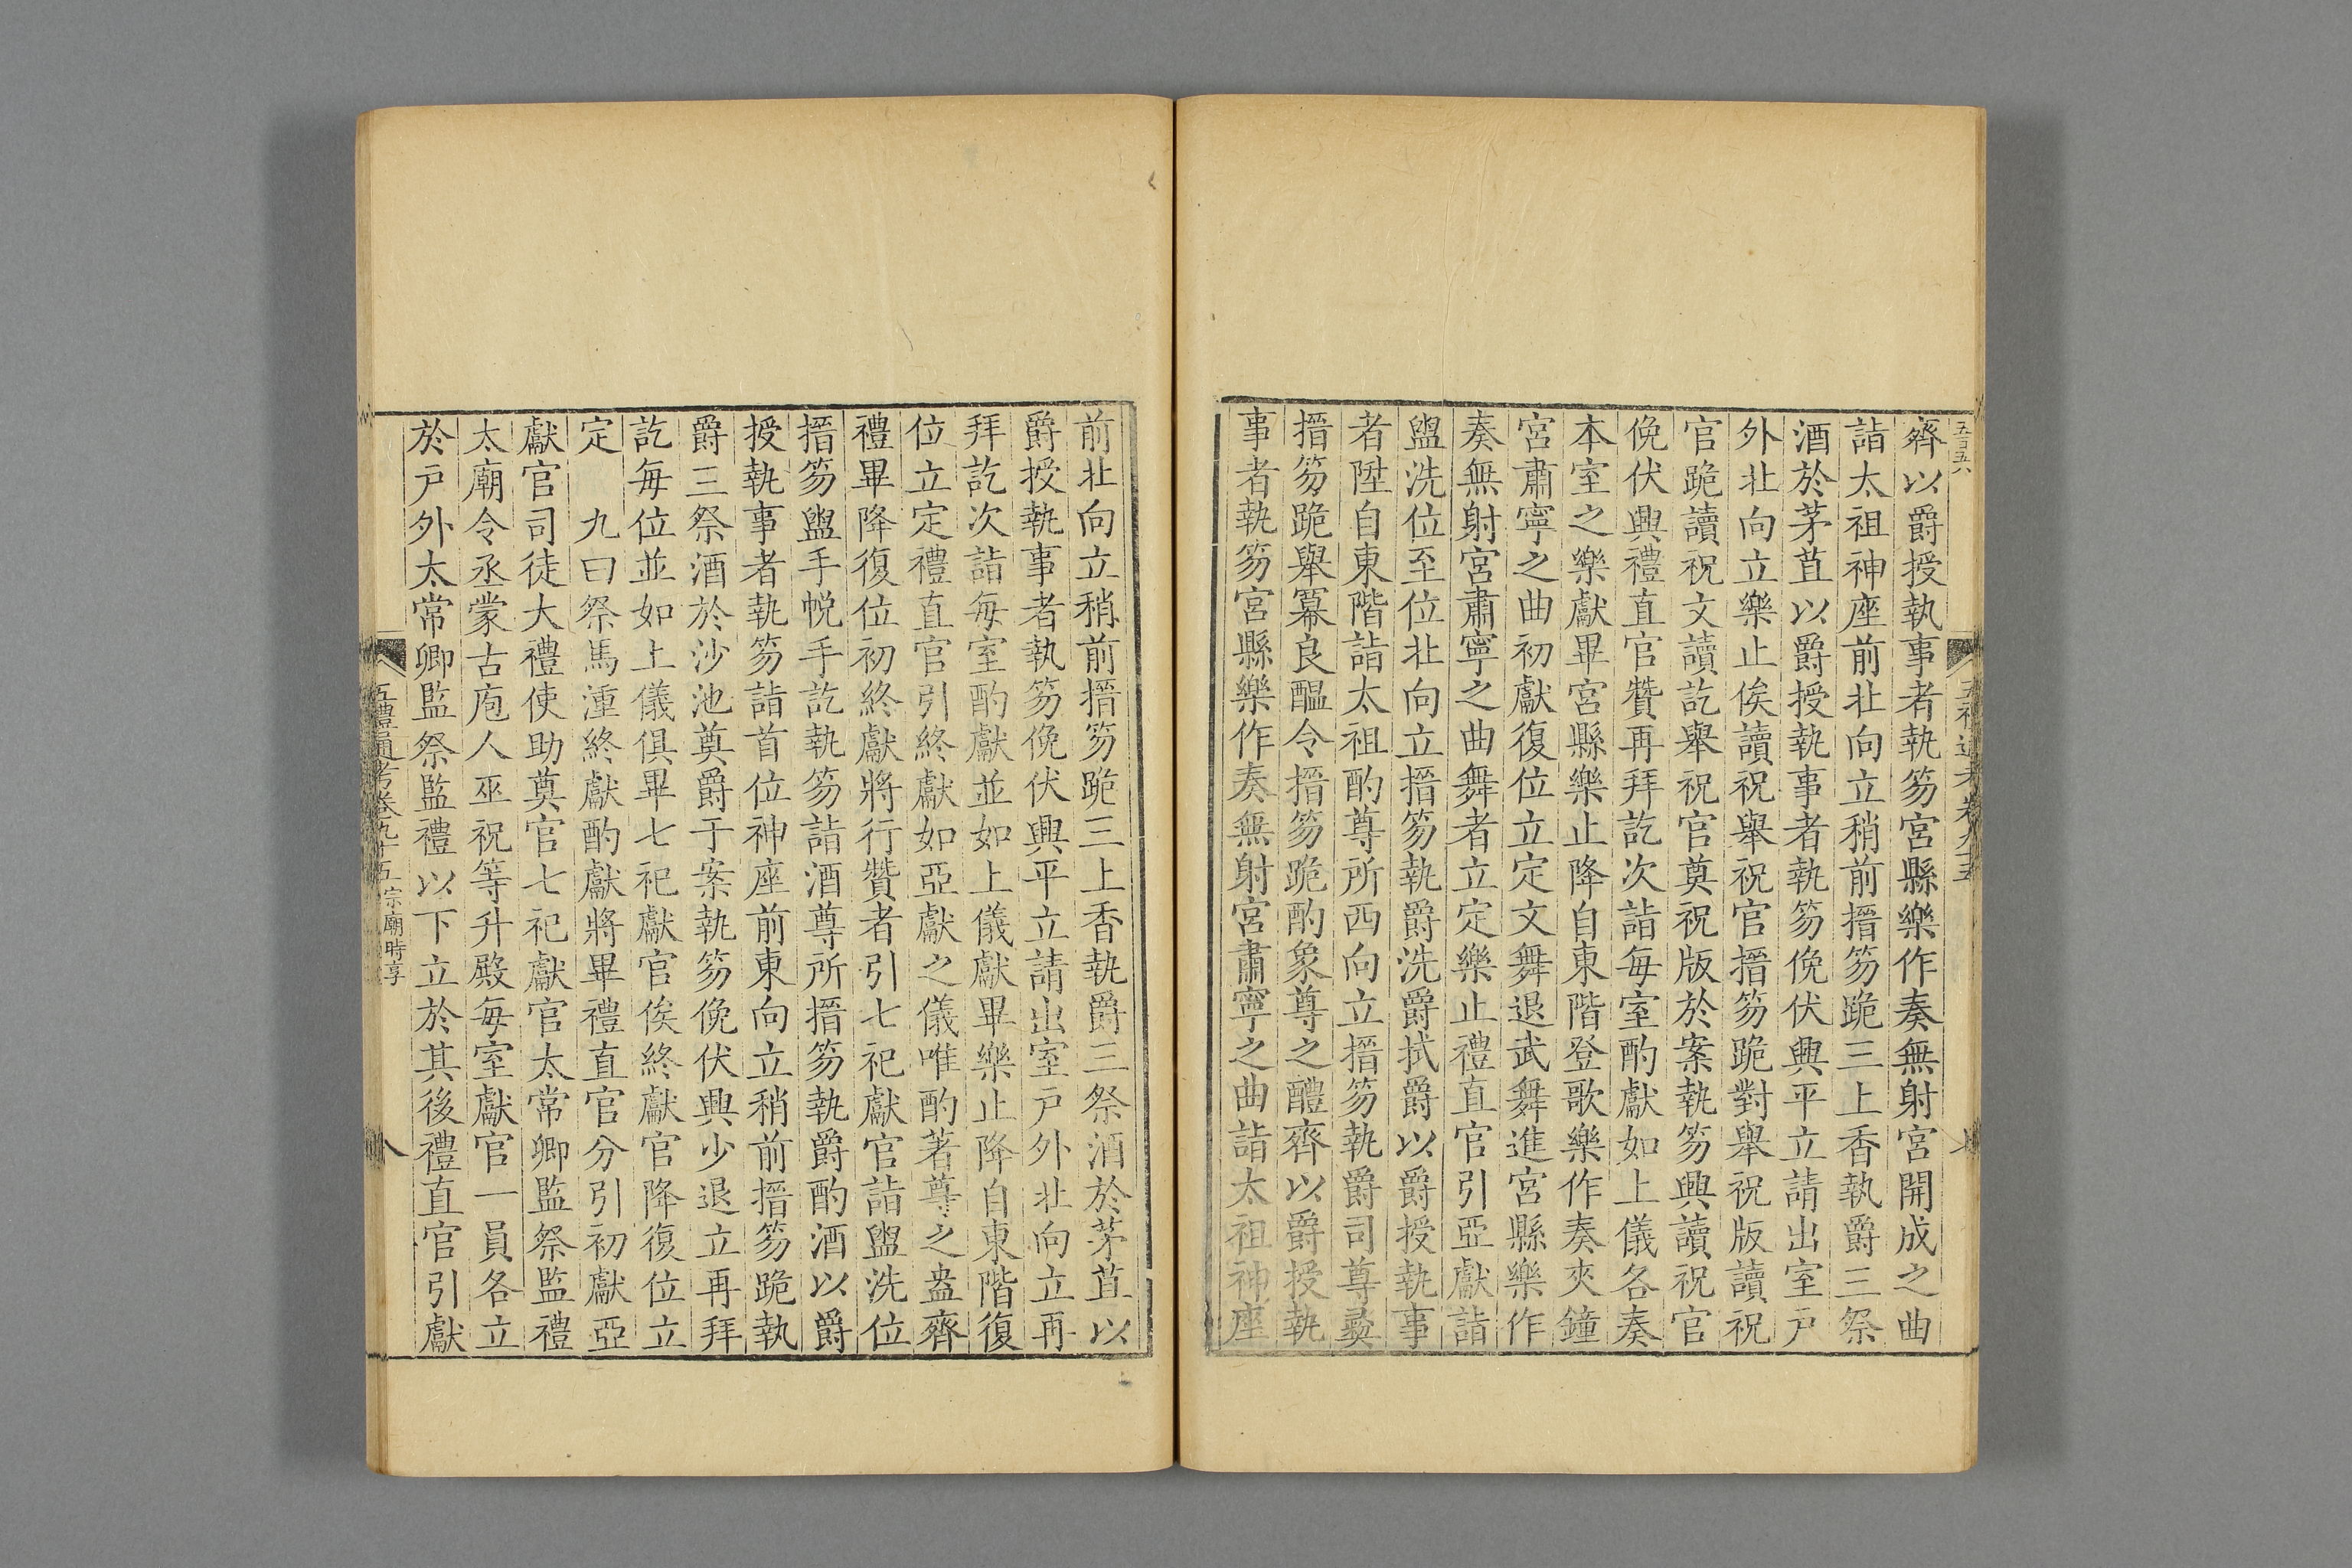 齊以爵授執事者執笏宮縣樂作奏無射宮開成之曲
詣太祖神座前北向立稍前搢笏跪三上香執爵三祭
酒於茅苴以爵授執事者執笏俛伏興平立請出室戶
外北向立樂止俟讀祝舉祝官搢笏跪對舉祝版讀祝
官跪讀祝文讀訖舉祝官奠祝版於案執笏興讀祝官
俛伏興禮直官贊再拜訖次詣每室酌獻如上儀各奏
本室之樂獻畢宮縣樂止降自東階登歌樂作奏夾鐘
宮肅寧之曲初獻復位立定文舞退武舞進宮縣樂作
奏無射宮肅寧之曲舞者立定樂止禮直官引亞獻詣
盥洗位至位北向立搢笏執爵洗爵拭爵以爵授執事
者陞自東階詣太祖酌尊所西向立搢笏執爵司尊彝
搢笏跪舉羃良醖令搢笏跪酌象尊之醴齊以爵授執
事者執笏宮縣樂作奏無射宮肅寧之曲詣太祖神座
前北向立稍前搢笏跪三上香執爵三祭酒於茅苴以
爵授執事者執笏俛伏興平立請出室戶外北向立再
拜訖次詣每室酌獻並如上儀獻畢樂止降自東階復
位立定禮直官引終獻如亞獻之儀唯酌著尊之盎齊
禮畢降復位初終獻將行贊者引七祀獻官詣盥洗位
搢笏盥手帨手訖執笏詣酒尊所搢笏執爵酌酒以爵
授執事者執笏詣首位神座前東向立稍前搢笏跪執
爵三祭酒於沙池奠爵于案執笏俛伏興少退立再拜
訖每位並如上儀俱畢七祀獻官俟終獻官降復位立
定　九曰祭馬湩終獻酌獻將畢禮直官分引初獻亞
獻官司徒大禮使助奠官七祀獻官太常卿監祭監禮
太廟令丞蒙古庖人巫祝等升殿每室獻官一員各立
於戶外太常卿監祭監禮以下立於其後禮直官引獻
五禮通考卷九十五　宗廟時享
八